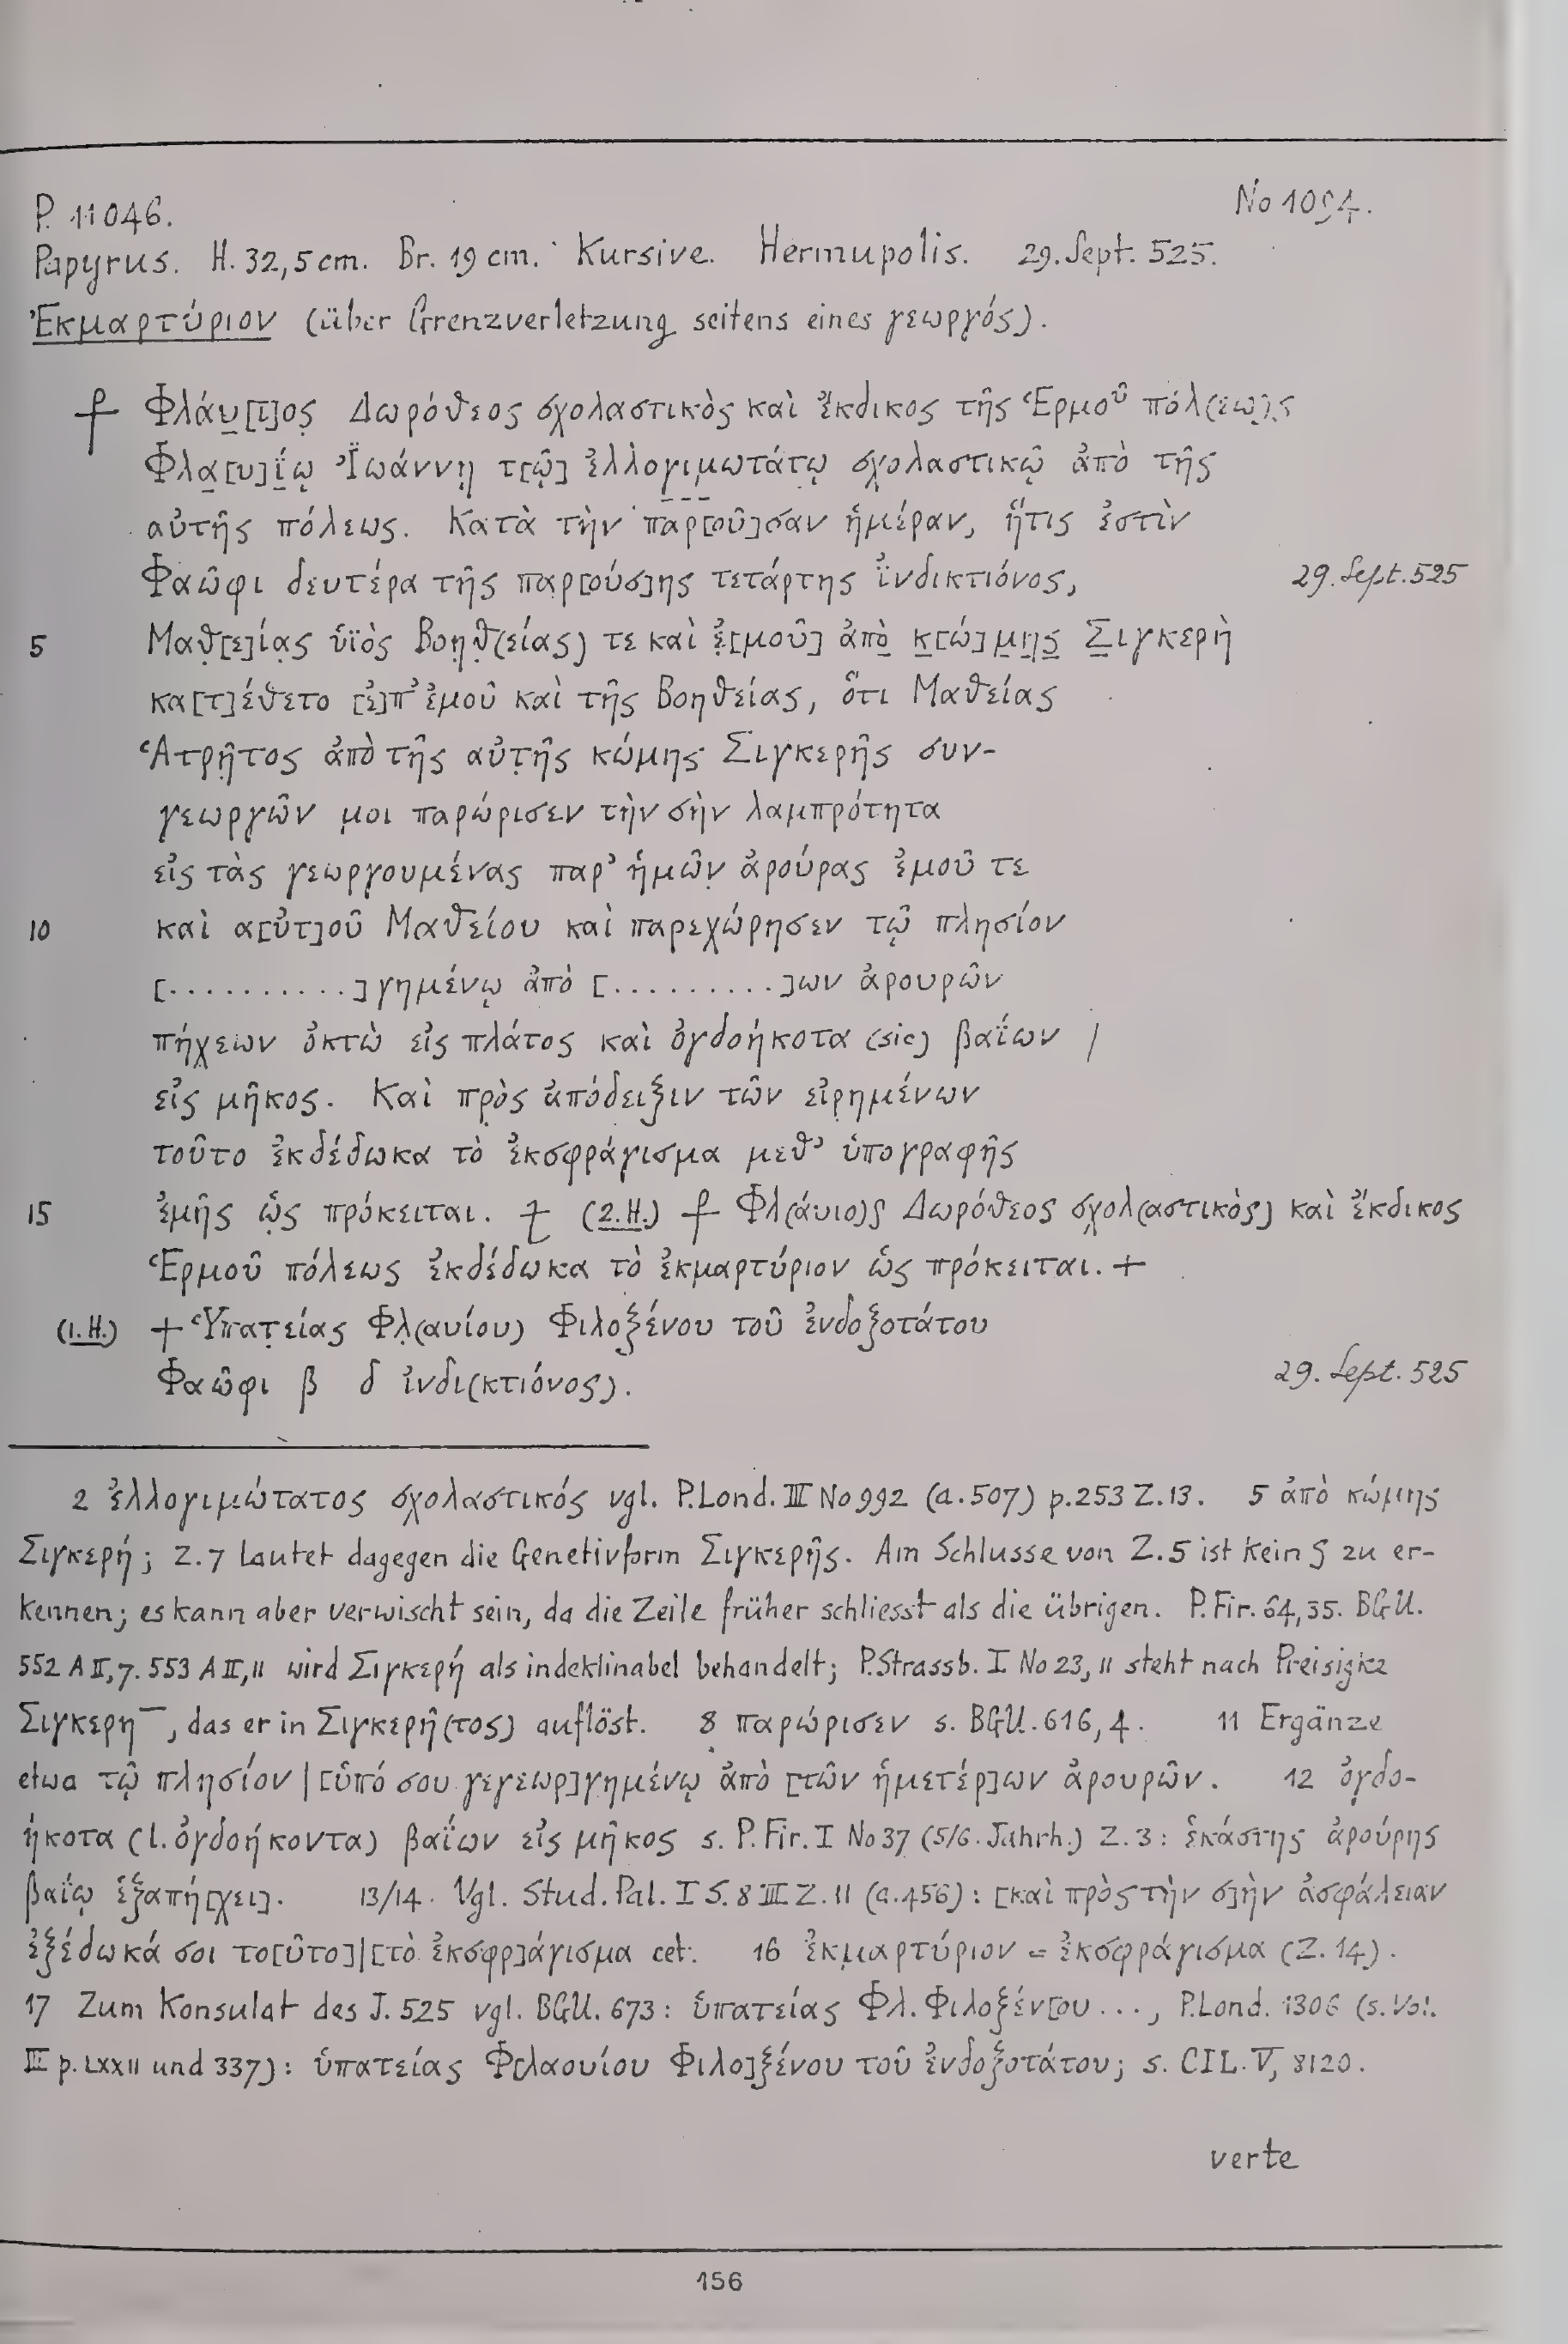 No 1094.
P. 11046.
Papyrus. H. 32,5 cm. Br. 19 cm. Kursive. Hermupolis. 29. Sept. 525.
Ἐκμαρτύριον (über Grenzverletzung seitens eines γεωργός).
⳨ Φλάυ[ι]ος Δωρόθεος σχολαστικὸς καὶ ἔκδικος τῆς Ἑρμοῦ πόλ(εω)ς
Φλα[υ]ΐῳ Ἰ̈ωάννῃ τ[ῷ] ἐλλογιμωτάτῳ σχολαστικῷ ἀπὸ τῆς
αὐτῆς πόλεως. Κατὰ τὴν παρ[οῦ]σαν ἡμέραν, ἥτις ἐστὶν
Φαῶφι δευτέρα τῆς παρ[ούσ]ης τετάρτης ἰ̈νδικτιόνος, 29. Sept. 525
5 Μαθ[ε]ίας ὑϊὸς Βοηθ(είας) τε καὶ ἐ[μοῦ] ἀπὸ κ[ώ]μης Σιγκερὴ
κα[τ]έθετο [ἐ]π' ἐμοῦ καὶ τῆς Βοηθείας, ὅτι Μαθείας
Ἁτρῆτος ἀπὸ τῆς αὐτῆς κώμης Σιγκερῆς συν-
γεωργῶν μοι παρώρισεν τὴν σὴν λαμπρότητα
εἰς τὰς γεωργουμένας παρ' ἡμῶν ἀρούρας ἐμοῦ τε
10 καὶ α[ὐτ]οῦ Μαθείου καὶ παρεχώρησεν τῷ πλησίον
[..........]γημένῳ ἀπὸ [.........]ων ἀρουρῶν
πήχεων ὀκτὼ εἰς πλάτος καὶ ὀγδοήκοτα (sic) βαΐων /
εἰς μῆκος. Καὶ πρὸς ἀπόδειξιν τῶν εἰρημένων
τοῦτο ἐκδέδωκα τὸ ἐκσφράγισμα μεθ' ὑπογραφῆς
15 ἐμῆς ὡς πρόκειται. ⳨ (2.H.) ⳨ Φλ(άυιο)ς Δωρόθεος σχολ(αστικὸς) καὶ ἔκδικος
Ἑρμοῦ πόλεως ἐκδέδωκα τὸ ἐκμαρτύριον ὡς πρόκειται. +
(1.H.) + Ὑπατείας Φλ(αυίου) Φιλοξένου τοῦ ἐνδοξοτάτου
Φαῶφι β δ ἰνδι(κτιόνος). 29. Sept. 525
2 ἐλλογιμώτατος σχολαστικός vgl. P.Lond. III No 992 (a. 507) p. 253 Z. 13. 5 ἀπὸ κώμης
Σιγκερή; Z. 7 lautet dagegen die Genetivform Σιγκερῆς. Am Schlusse von Z. 5 ist kein ς zu er-
kennen; es kann aber verwischt sein, da die Zeile früher schliesst als die übrigen. P.Fir. 64,35. BGU.
552 A II,7. 553 A II,11 wird Σιγκερή als indeklinabel behandelt; P.Strassb. I No 23,11 steht nach Preisigke
Σιγκερη¯, das er in Σιγκερῆ(τος) auflöst. 8 παρώρισεν s. BGU. 616,4. 11 Ergänze
etwa τῷ πλησίον | [ὑπό σου γεγεωρ]γημένῳ ἀπὸ [τῶν ἡμετέρ]ων ἀρουρῶν. 12 ὀγδο-
ήκοτα (l. ὀγδοήκοντα) βαΐων εἰς μῆκος s. P. Fir. I No 37 (5/6. Jahrh.) Z. 3: ἑκάστης ἀρούρης
βαΐῳ ἑξαπή[χει]. 13/14. Vgl. Stud. Pal. I S. 8 III Z. 11 (a. 456): [καὶ πρὸς τὴν σ]ὴν ἀσφάλειαν
ἐξέδωκά σοι το[ῦτο]|[τὸ ἐκσφρ]άγισμα cet. 16 ἐκμαρτύριον = ἐκσφράγισμα (Z. 14).
17 Zum Konsulat des J. 525 vgl. BGU. 673: ὑπατείας Φλ. Φιλοξέν[ου ..., P.Lond. 1306 (s. Vol.
III p. LXXII und 337): ὑπατείας Φ[λαουίου Φιλο]ξένου τοῦ ἐνδοξοτάτου; s. CIL. V, 8120.
verte
156